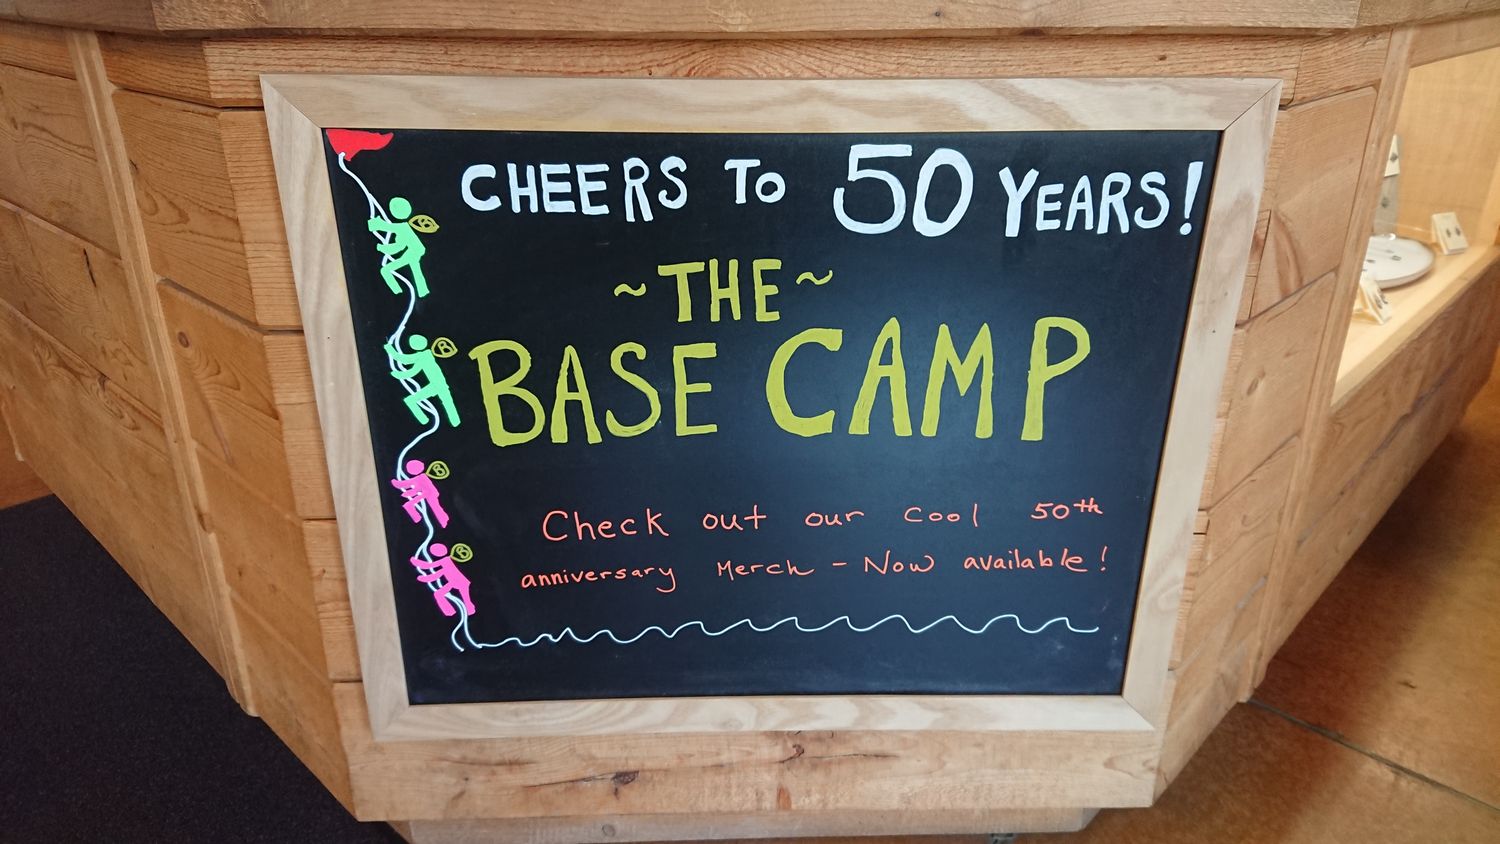 CHEERS TO 50 YEARS!
~THE~
BASE CAMP
Check out our cool 50th
anniversary Merch - Now available!
B
B
B
B